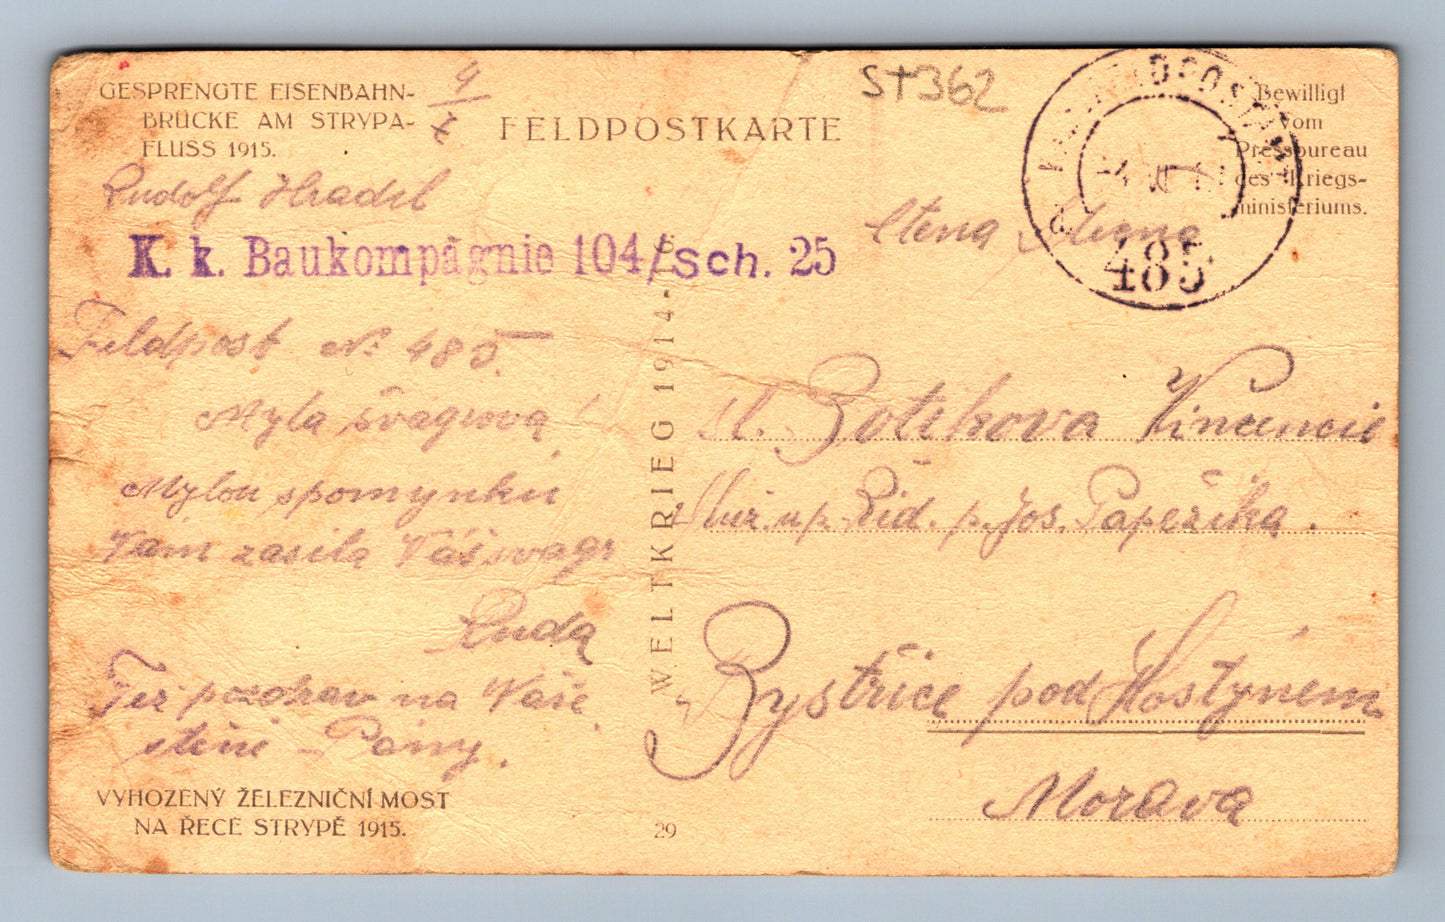 GESPRENGTE EISENBAHN-
BRÜCKE AM STRYPA-
FLUSS 1915.
FELDPOSTKARTE
ST362
Bewilligt
vom
Pressbureau
des Kriegs-
ministeriums.
485
Rudolf Hradil
K. k. Baukompagnie 104/Sch. 25
Feldpost № 485.
Myla švagrová!
Mylou spomynku
Vám zasila Váš švagr
Ruda
Též pozdrav na Vaše
sl. Botikova Vincencie
p. Jos. Papežika.
Bystřice pod Hostýnem
Morava
WELTKRIEG 1914-
VYHOZENÝ ŽELEZNIČNÍ MOST
NA ŘECE STRYPĚ 1915.
29